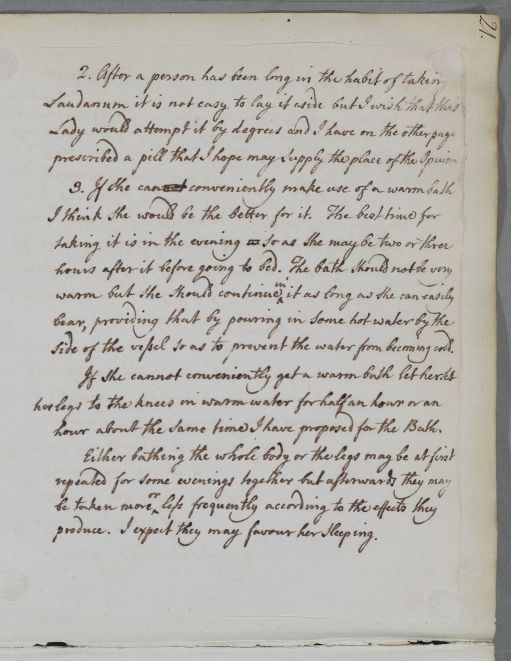 21.
2. After a person has been long in the habit of taking
Laudanum it is not easy to lay it aside but I wish that this
Lady would attempt it by degrees and I have on the other page
prescribed a pill that I hope may supply the place of the Opium
3. If she can conveniently make use of a warm bath
I think she would be the better for it. The best time for
taking it is in the evening so as she may be two or three
hours after it before going to bed. The bath should not be very
warm but she should continue in it as long as she can easily
bear, providing that by pouring in some hot water by the
side of the vessel so as to prevent the water from becoming cold.
If she cannot conveniently get a warm bath let her set
her legs to the knees in warm water for half an hour or an
hour about the same time I have proposed for the Bath.
Either bathing the whole body or the legs may be at first
repeated for some evenings together but afterwards they may
be taken more or less frequently according to the effects they
produce. I expect they may favour her sleeping.